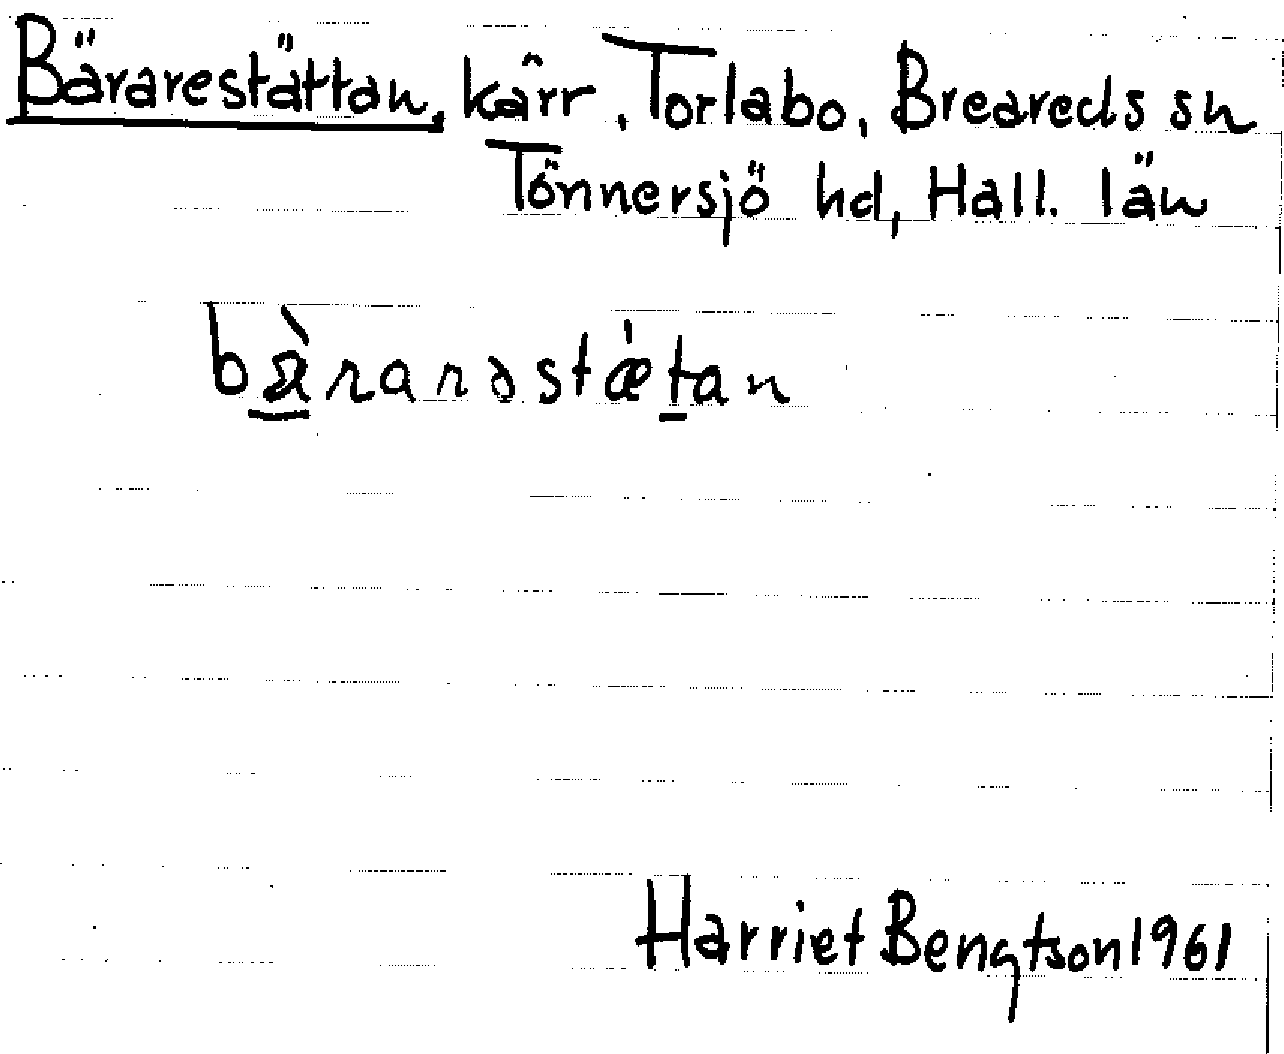 Bärarestättan, kärr, Torlabo, Breareds sn
Tönnersjö hd, Hall. län
bæ̀rarəstæ̍tan
Harriet Bengtson 1961